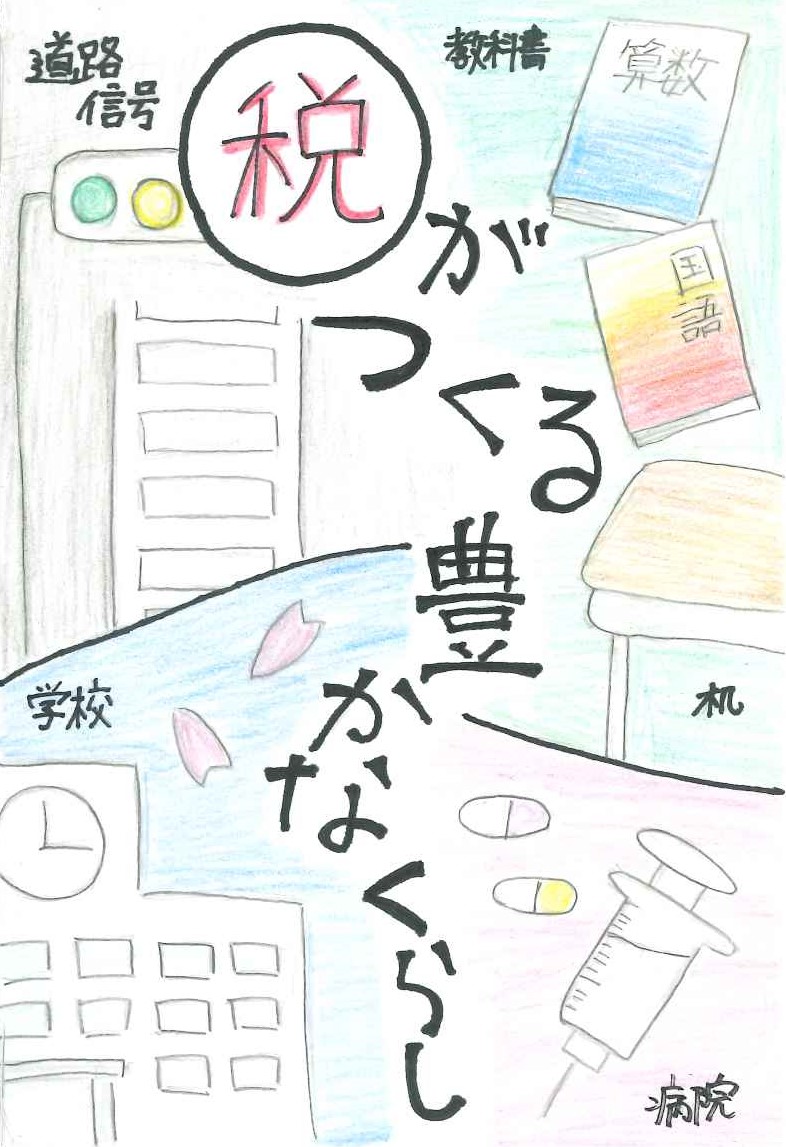 道路
信号
税がつくる豊かなくらし
教科書
算数
国語
机
学校
病院